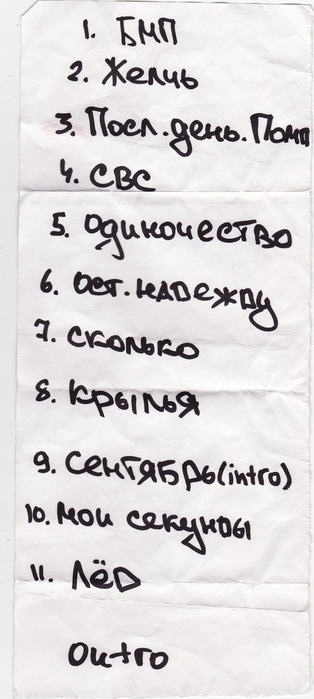 1. БМП
2. Желчь
3. Посл.день.Помп
4. СВС
5. Одиночество
6. Ост.надежду
7. Сколько
8. Крылья
9. Сентябрь(intro)
10. Мои секунды
11. Лёд
Outro